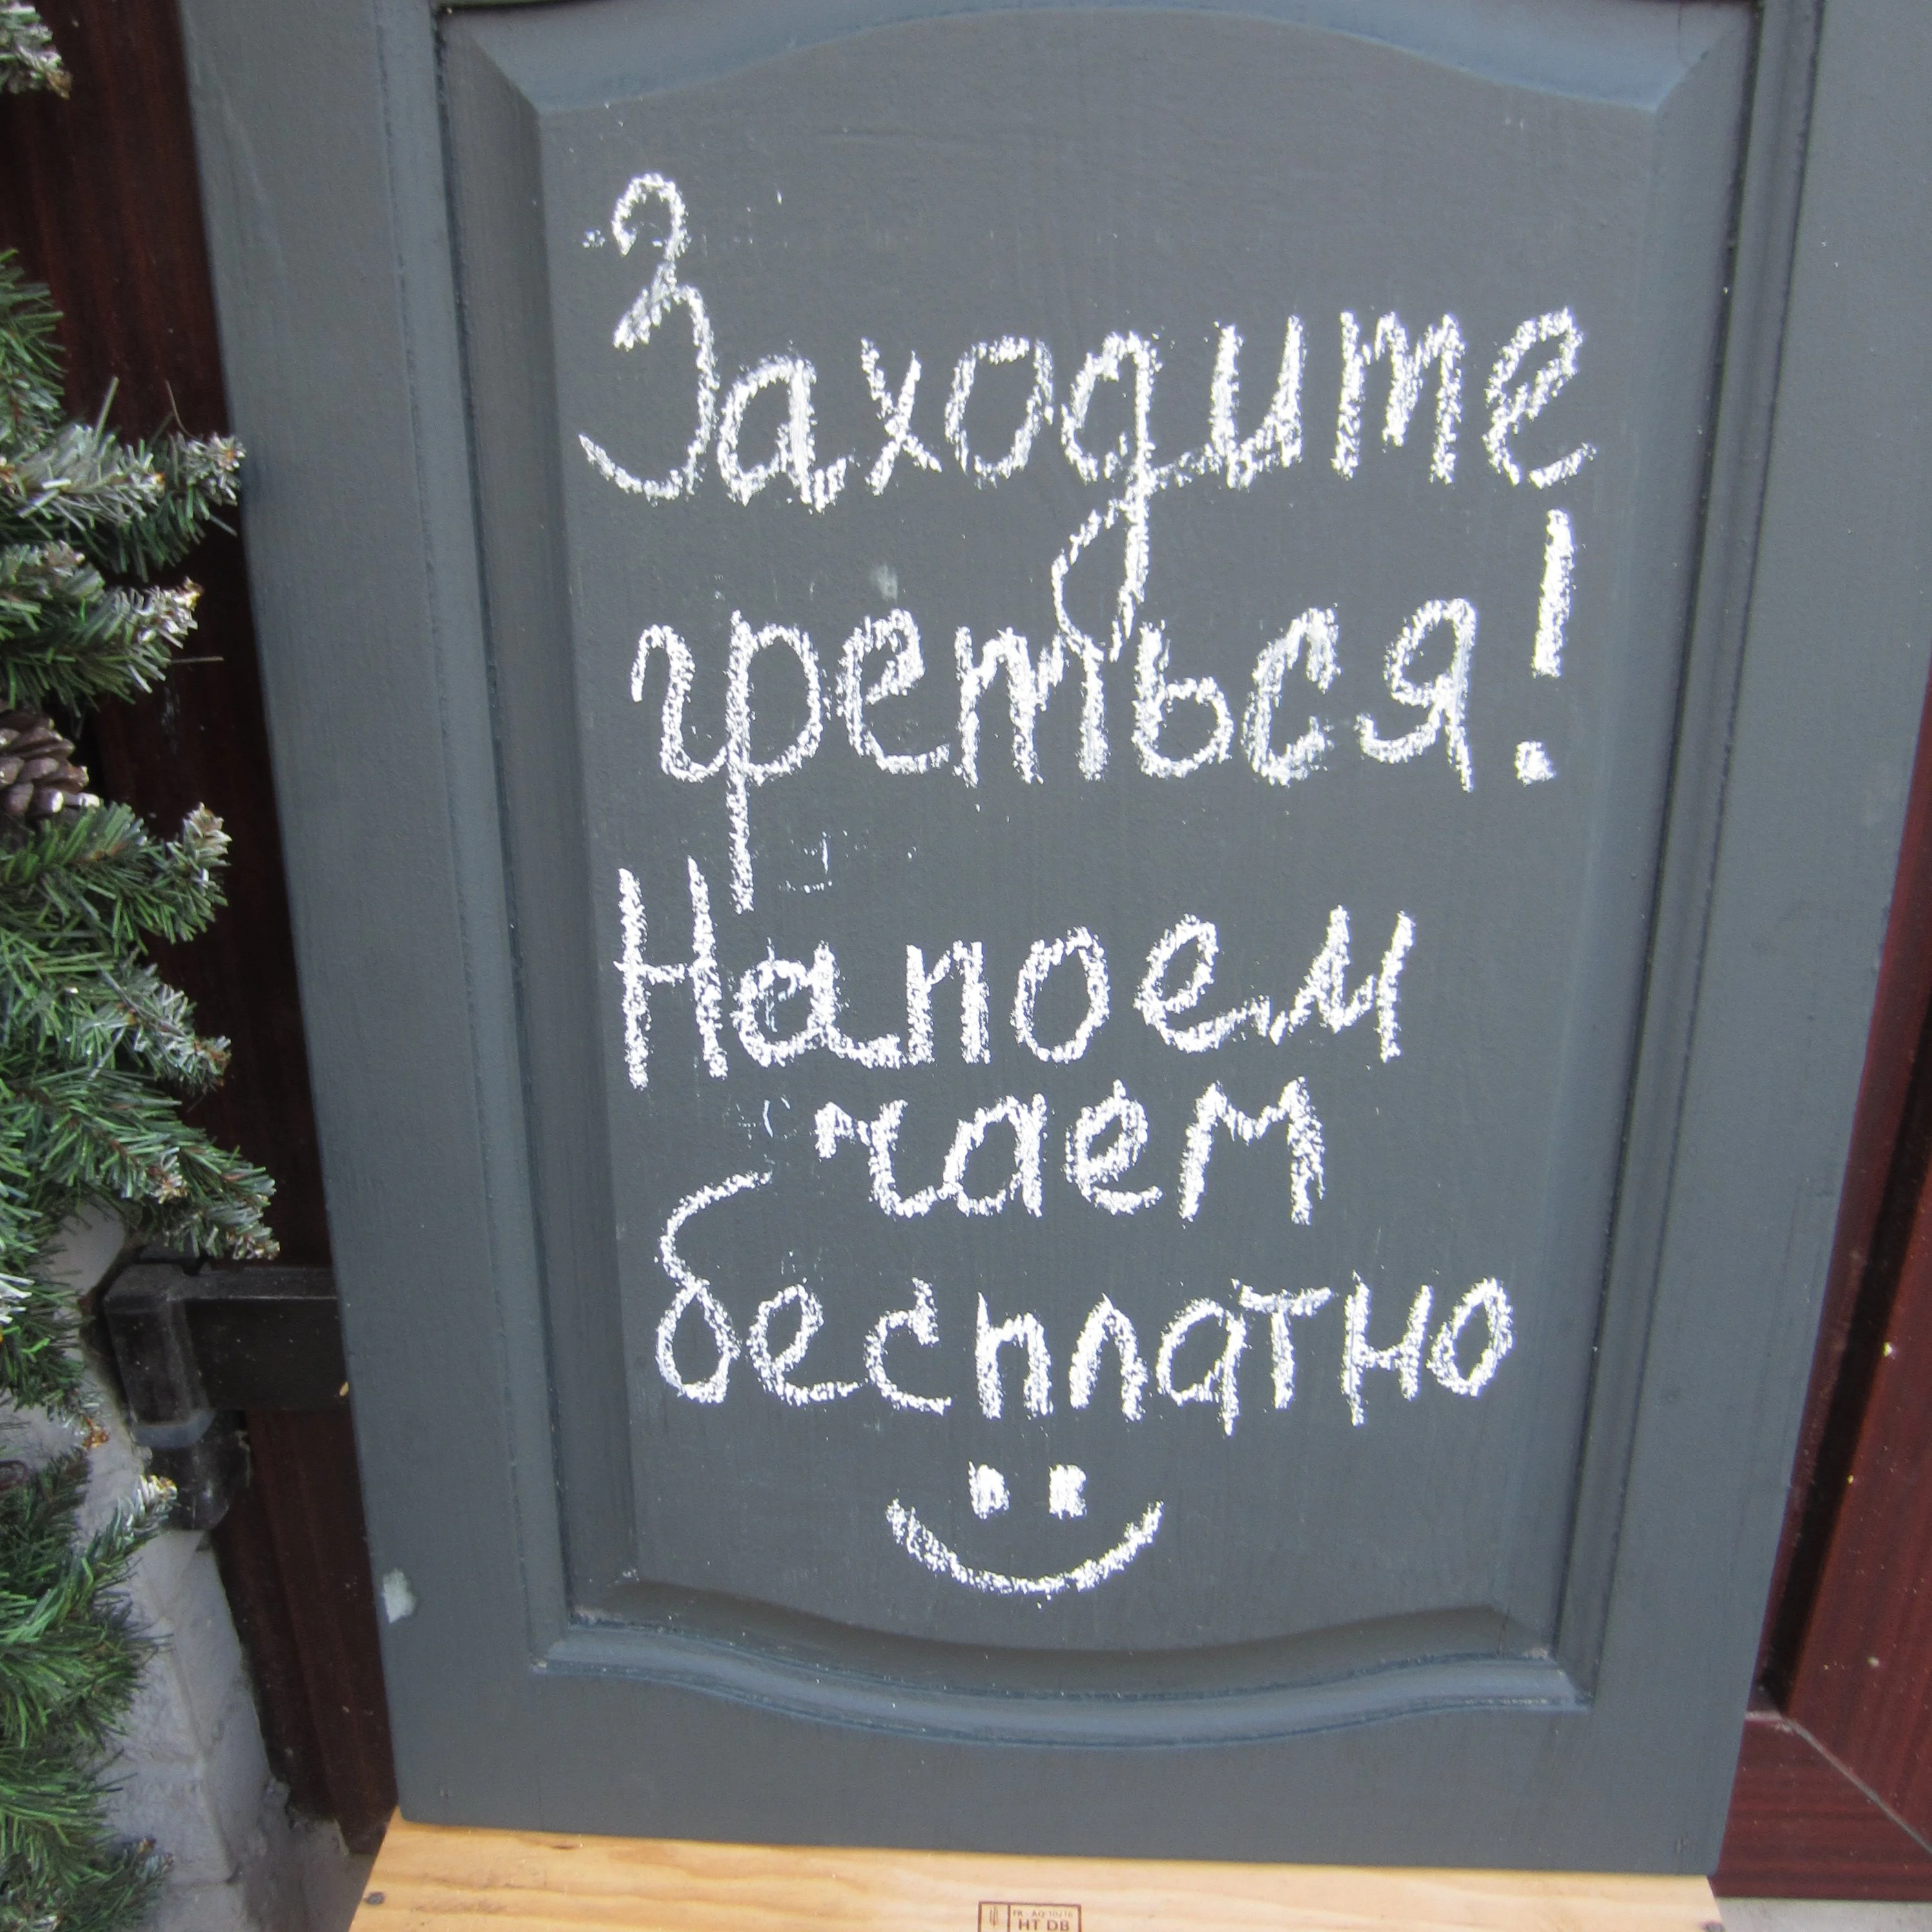 Заходите
греться!
Напоем
чаем
бесплатно
HT DB